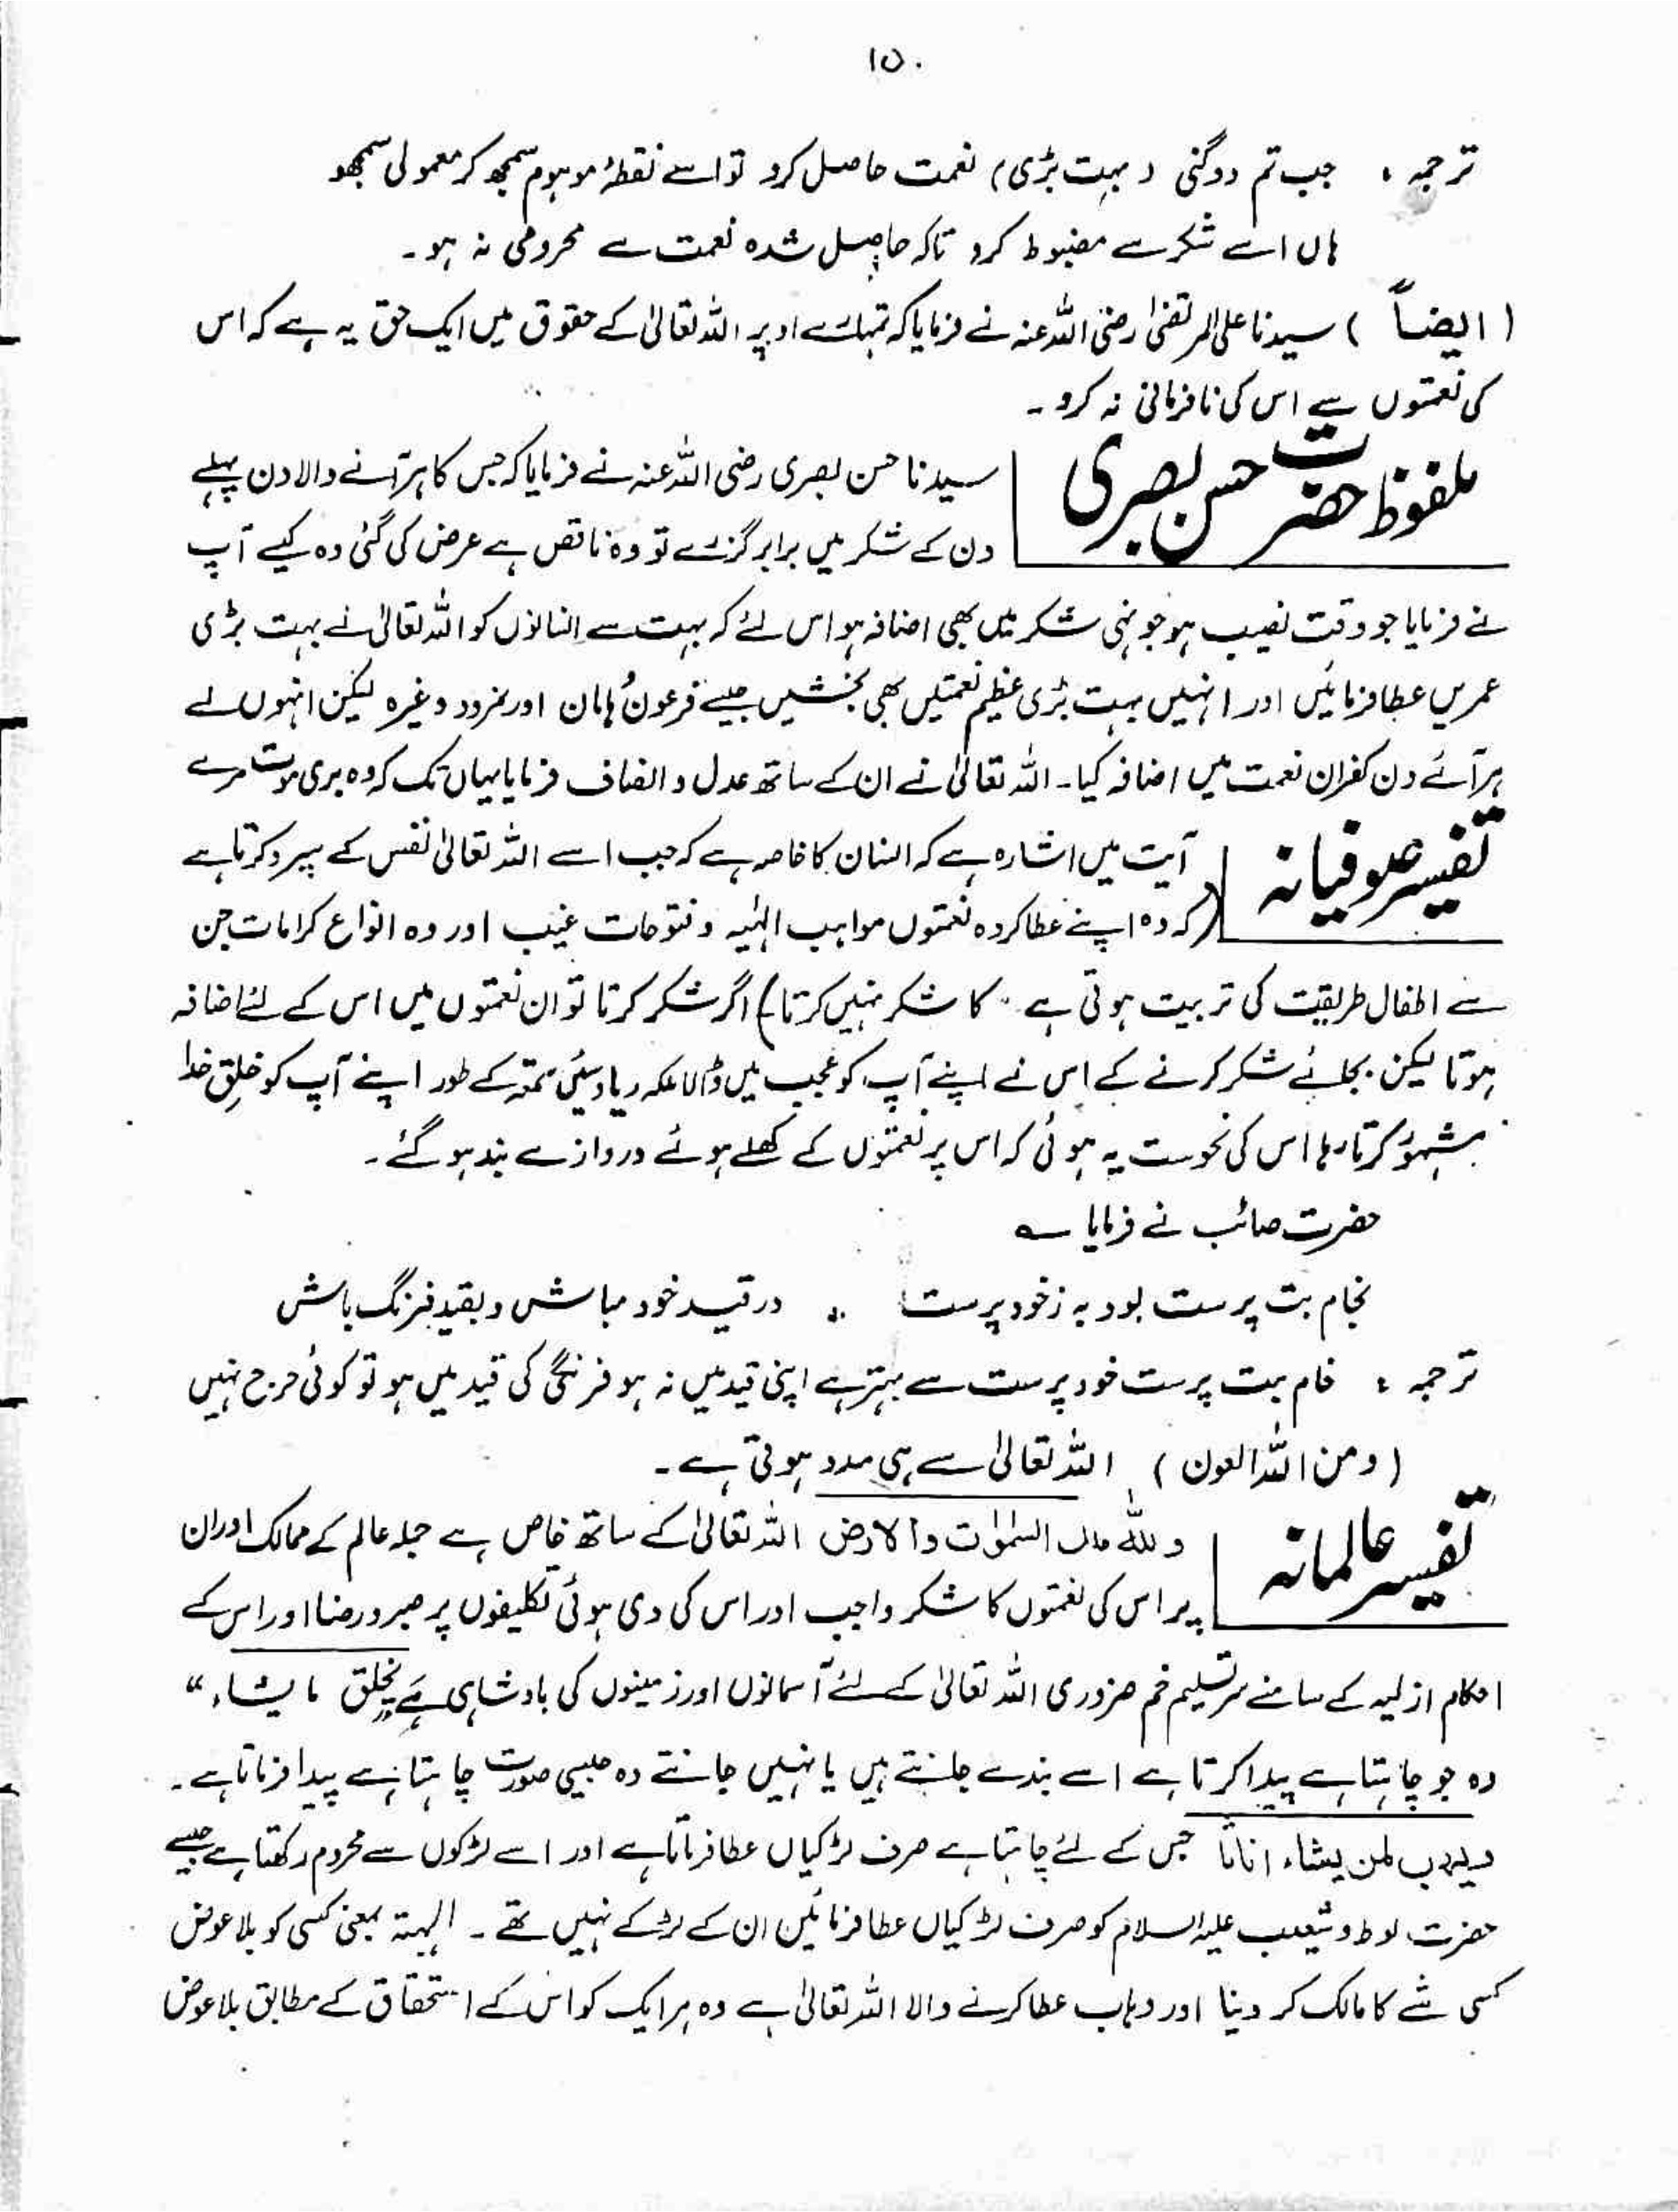 ۱۵۰
ترجمہ : جب تم دوگنی (بہت بڑی) نعمت حاصل کرو تو اسے نقطۂ موہوم سمجھ کر معمولی سمجھو
ہاں اسے شکر سے مضبوط کرو تاکہ حاصل شدہ نعمت سے محرومی نہ ہو۔
(ایضاً) سیدنا علی المرتضیٰ رضی اللہ عنہ نے فرمایا کہ تمہارے اوپر اللہ تعالیٰ کے حقوق میں ایک حق یہ ہے کہ اس
کی نعمتوں سے اس کی نافرمانی نہ کرو۔
ملفوظ حضرت حسن بصری
سیدنا حسن بصری رضی اللہ عنہ نے فرمایا کہ جس کا ہر آنے والا دن پہلے
دن کے شکر میں برابر گزرے تو وہ ناقص ہے عرض کی گئی وہ کیسے آپ
نے فرمایا جو وقت نصیب ہو جونہی شکر میں بھی اضافہ ہو اس لئے کہ بہت سے انسانوں کو اللہ تعالیٰ نے بہت بڑی
عمریں عطا فرمائیں اور انہیں بہت بڑی عظیم نعمتیں بھی بخشیں جیسے فرعون ہامان اور نمرود وغیرہ لیکن انہوں نے
ہر آئے دن کفران نعمت میں اضافہ کیا۔ اللہ تعالیٰ نے ان کے ساتھ عدل و انصاف فرمایا یہاں تک کہ وہ بری موت مرے
تفسیر صوفیانہ
آیت میں اشارہ ہے کہ انسان کا خاصہ ہے کہ جب اسے اللہ تعالیٰ نفس کے سپرد کرتا ہے
(کہ وہ اپنے عطا کردہ نعمتوں مواہب الٰہیہ و فتوحات غیب اور وہ انواع کرامات جن
سے اطفال طریقت کی تربیت ہوتی ہے کا شکر نہیں کرتا) اگر شکر کرتا تو ان نعمتوں میں اس کے لئے اضافہ
ہوتا لیکن بجائے شکر کرنے کے اس نے اپنے آپ کو عجب میں ڈالا بلکہ ریا و سمعہ کے طور اپنے آپ کو خلق خدا
مشہور کرتا رہا اس کی نحوست یہ ہوئی کہ اس پر نعمتوں کے کھلے ہوئے دروازے بند ہو گئے۔
حضرت صائب نے فرمایا ؎
نجام بت پرست بود بہ ز خود پرست ؞ در قید خود مباش و بقید فرنگ باش
ترجمہ : خام بت پرست خود پرست سے بہتر ہے اپنی قید میں نہ ہو فرنگی کی قید میں ہو تو کوئی حرج نہیں
(ومن اللہ العون) اللہ تعالیٰ سے ہی مدد ہوتی ہے۔
تفسیر عالمانہ
وللہ ملک السمٰوات والارض اللہ تعالیٰ کے ساتھ خاص ہے جملہ عالم کے ممالک اور ان
پر اس کی نعمتوں کا شکر واجب اور اس کی دی ہوئی تکلیفوں پر صبر و رضا اور اس کے
احکام ازلیہ کے سامنے سر تسلیم خم ضروری اللہ تعالیٰ کے لئے آسمانوں اور زمینوں کی بادشاہی ہے "یخلق ما یشاء"
وہ جو چاہتا ہے پیدا کرتا ہے اسے بندے جانتے ہیں یا نہیں جانتے وہ جیسی صورت چاہتا ہے پیدا فرماتا ہے۔
ویہب لمن یشاء اناثا جس کے لئے چاہتا ہے صرف لڑکیاں عطا فرماتا ہے اور اسے لڑکوں سے محروم رکھتا ہے جیسے
حضرت لوط و شعیب علیہ السلام کو صرف لڑکیاں عطا فرمائیں ان کے لڑکے نہیں تھے۔ الہبۃ بمعنی کسی کو بلا عوض
کسی شے کا مالک کر دینا اور وہاب عطا کرنے والا اللہ تعالیٰ ہے وہ ہر ایک کو اس کے استحقاق کے مطابق بلا عوض